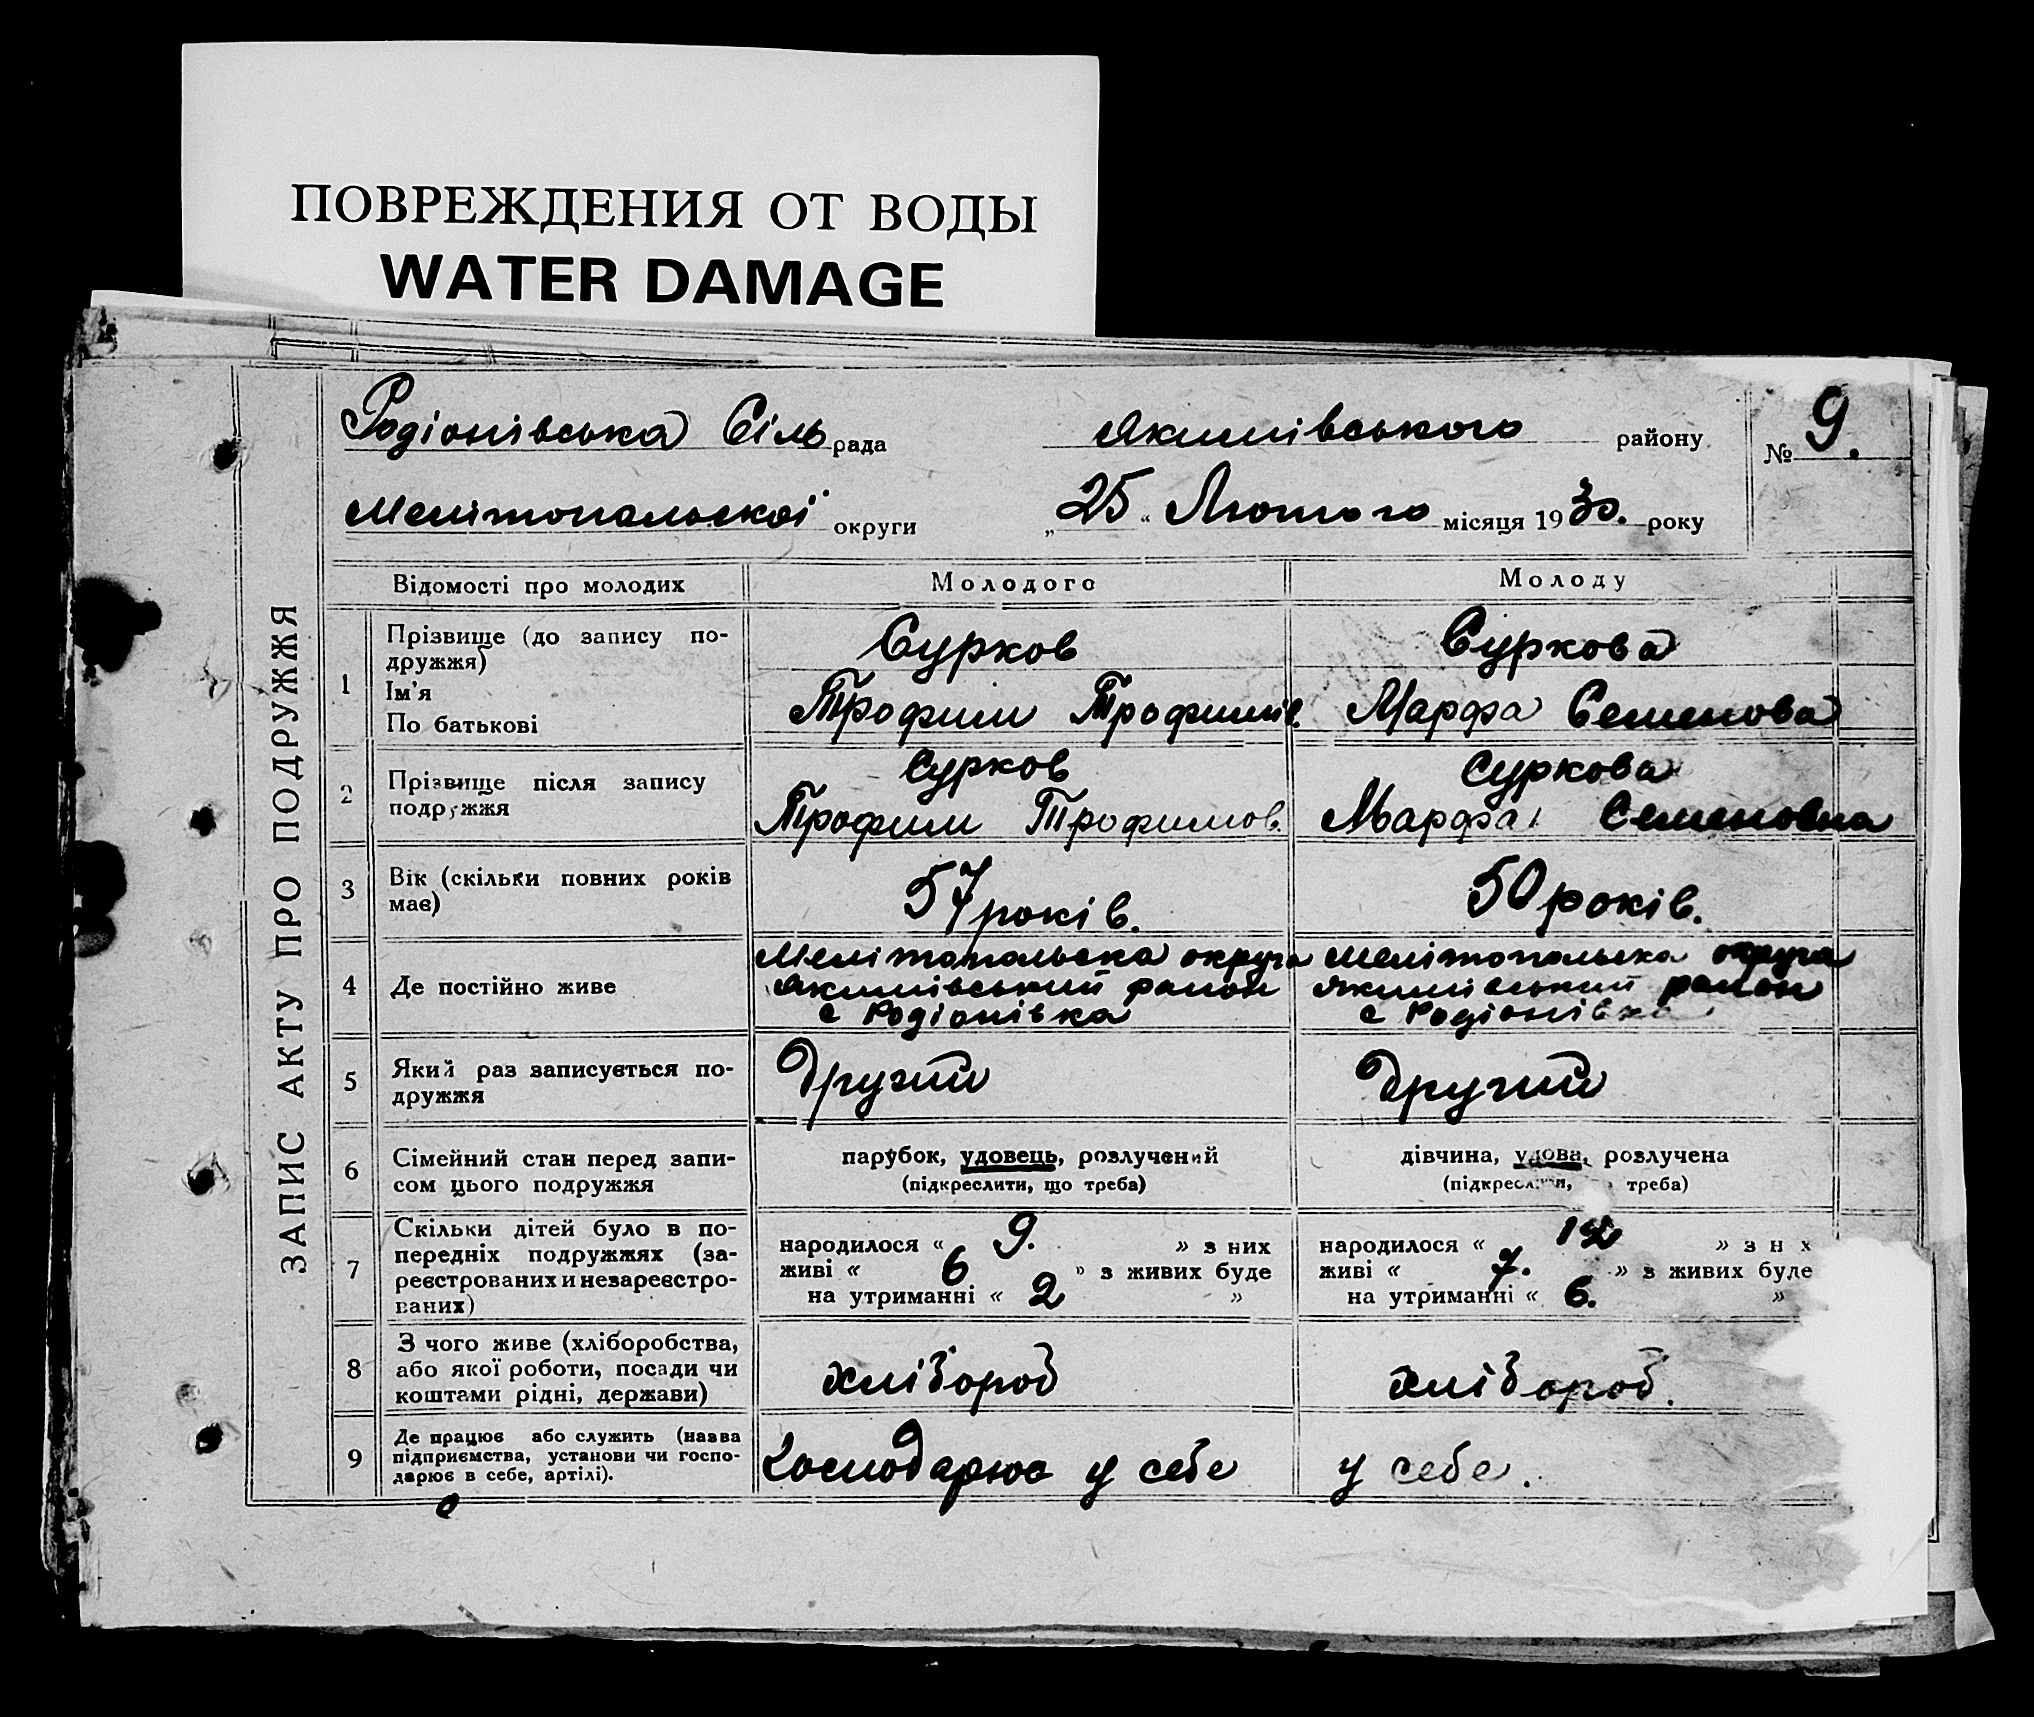 ПОВРЕЖДЕНИЯ ОТ ВОДЫ
WATER DAMAGE
ЗАПИС АКТУ ПРО ПОДРУЖЖЯ
Родіонівська Сіль рада Якимівського району № 9.
Мелітопольскої округи „25“ Лютого місяця 1930. року
Відомості про молодих Молодого Молоду
1 Прізвище (до запису по-
дружжя) Сурков Суркова
Ім'я
По батькові Трофим Трофимів. Марфа Семенова
2 Прізвище після запису
подружжя
Сурков Суркова
Трофим Трофимов. Марфа Семеновна
3 Вік (скільки повних років
має) 57 років. 50 років.
4 Де постійно живе
Мелітопольска округа Мелітопольска округа
Якимівський район Якимівський район
с Родіонівка с Родіонівка
5 Який раз записується по-
дружжя Другий Другий
6 Сімейний стан перед запи-
сом цього подружжя
парубок, удовець, розлучений дівчина, удова, розлучена
(підкреслити, що треба) (підкреслити, треба)
7 Скільки дітей було в по-
передніх подружжях (за-
реєстрованих и незареєстро-
ваних)
народилося « 9. » з них народилося « 12 » з н х
живі « 6 » з живих буде живі « 7. » з живих буде
на утриманні « 2 » на утриманні « 6. »
8 З чого живе (хліборобства,
або якої роботи, посади чи
коштами рідні, держави)
хлібороб хлібороб.
9 Де працює або служить (назва
підприємства, установи чи госпо-
дарює в себе, артілі).
Господарює у себе у себе.